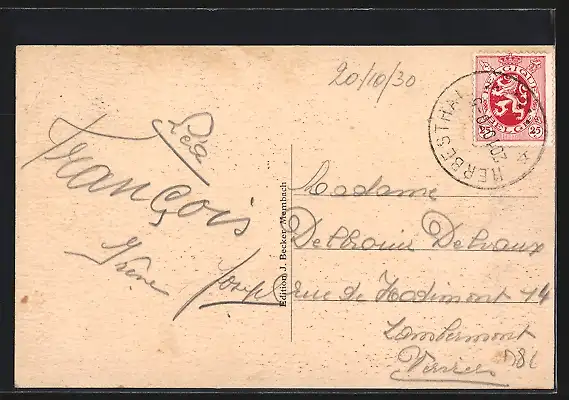 20/10/30
Léa
François
Irène
Joseph
Edition J. Becker, Membach
BELGIQUE
BELGIE
25 25
HERBESTHAL
Madame
Delvaux
rue de Hodimont 14
Lambermont
Verviers